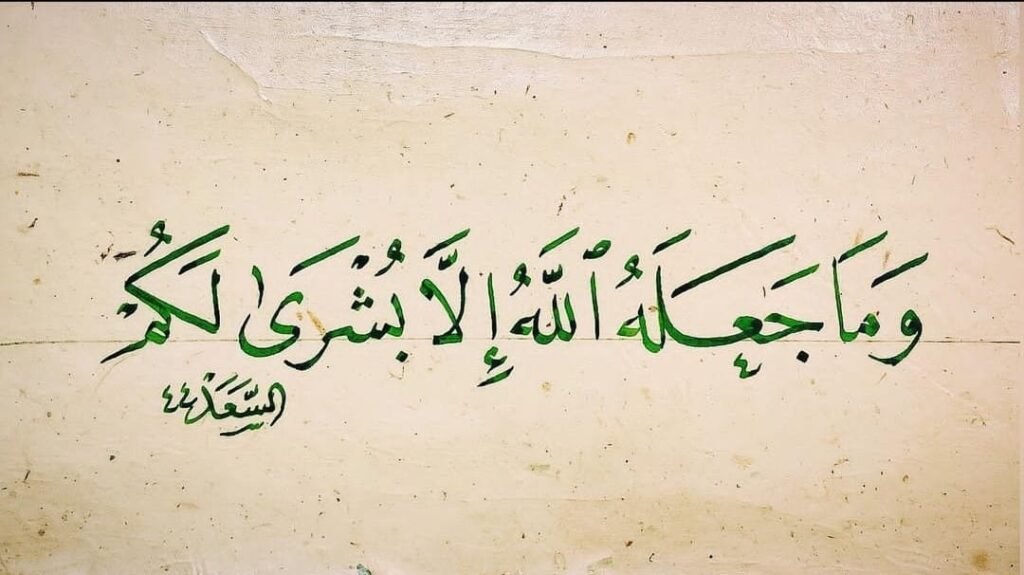 وَمَا جَعَلَهُ ٱللَّهُ إِلَّا بُشْرَىٰ لَكُمْ
السعد ٤٤